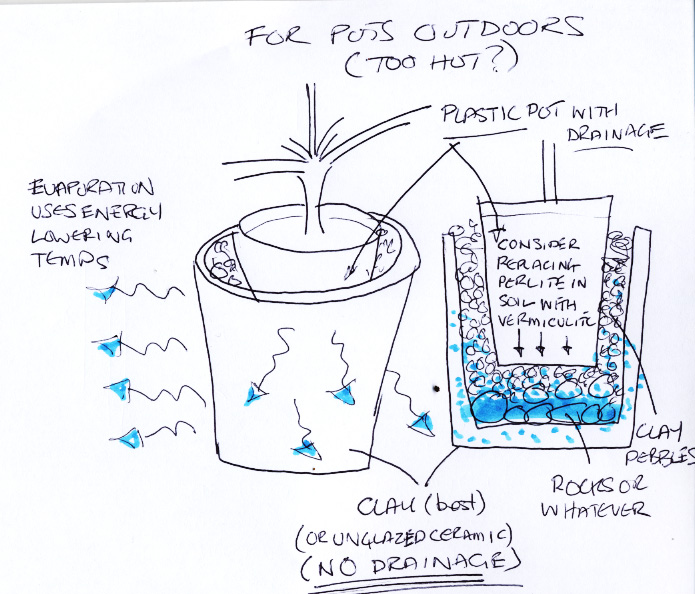 FOR POTS OUTDOORS
(TOO HOT?)
PLASTIC POT WITH
DRAINAGE
EVAPORATION
USES ENERGY
LOWERING
TEMPS
CONSIDER
REPLACING
PERLITE IN
SOIL WITH
VERMICULITE
CLAY
PEBBLES
ROCKS OR
WHATEVER
CLAY (best)
(OR UNGLAZED CERAMIC)
(NO DRAINAGE)